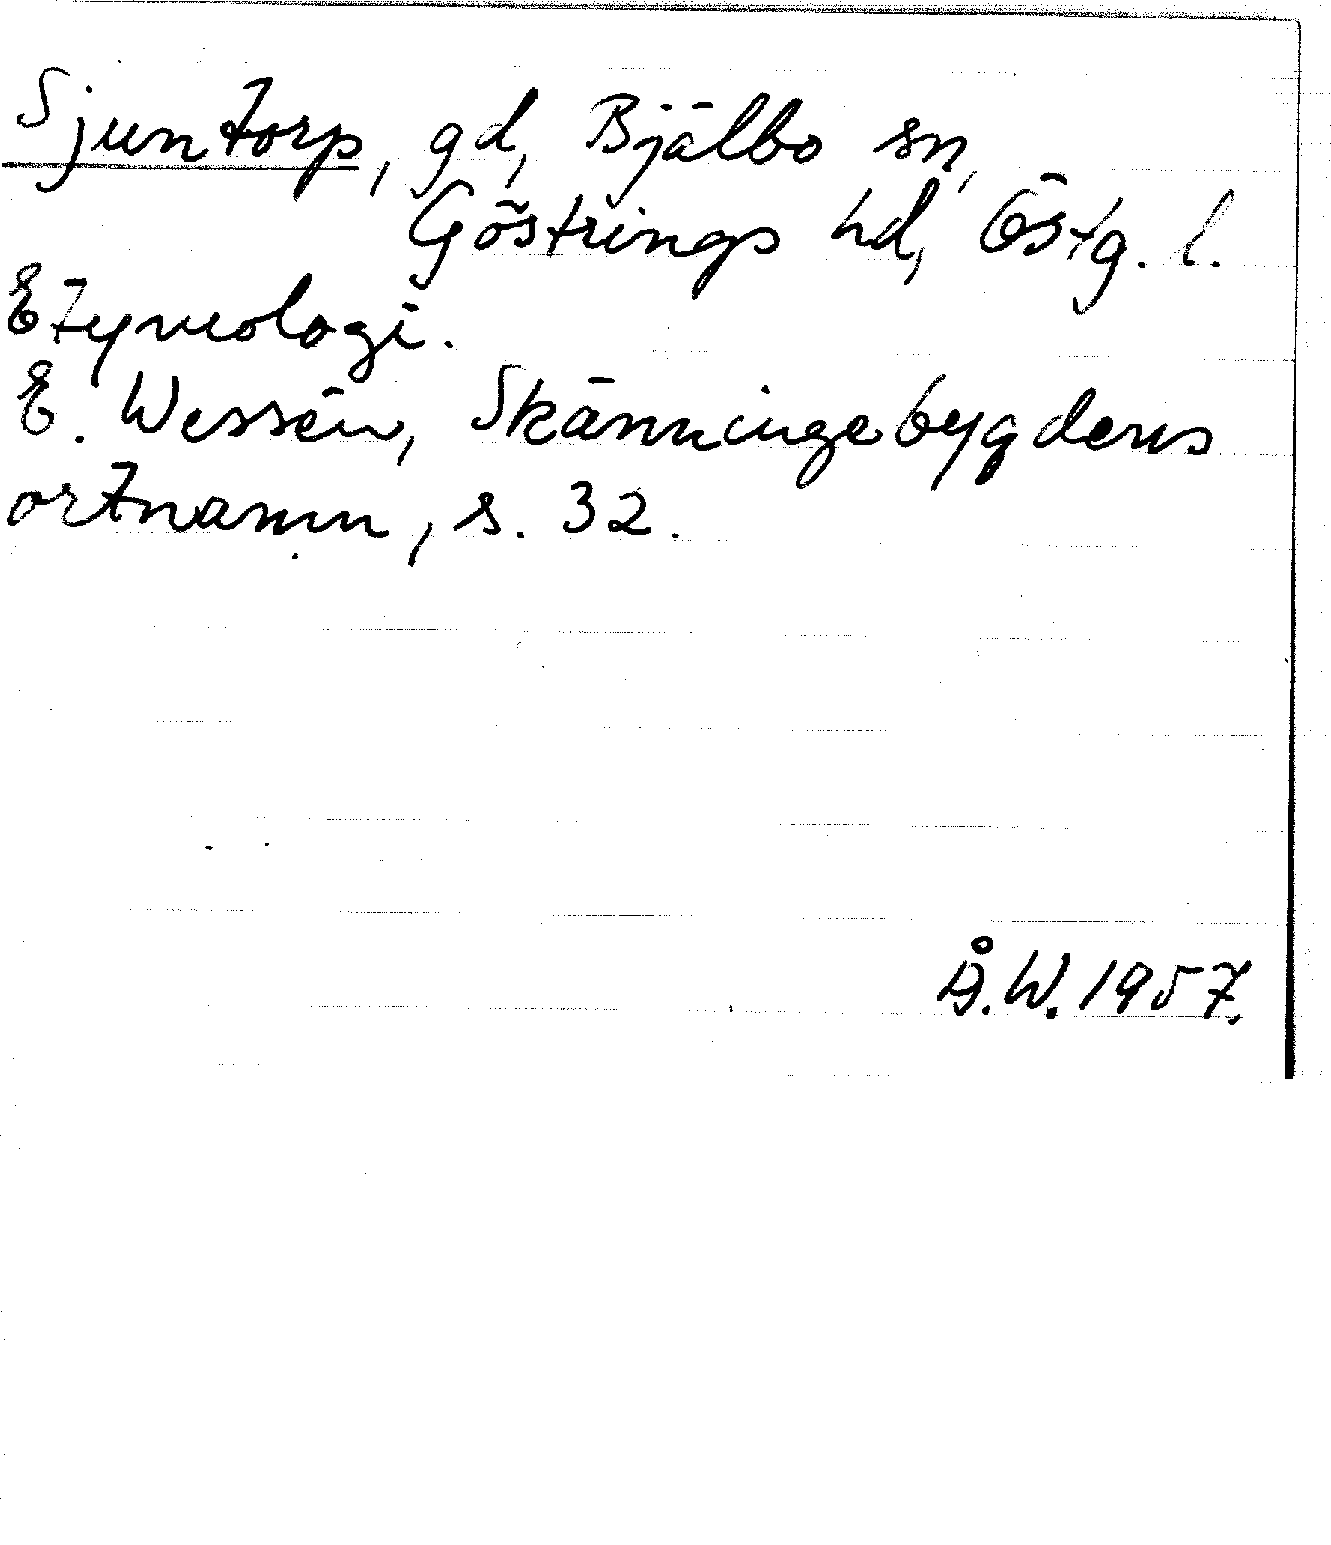 Sjuntorp, gd, Bjälbo sn,
Göstrings hd, Östg. l.
Etymologi.
E. Wessén, Skänningebygdens
ortnamn, s. 32.
Å.W. 1957.